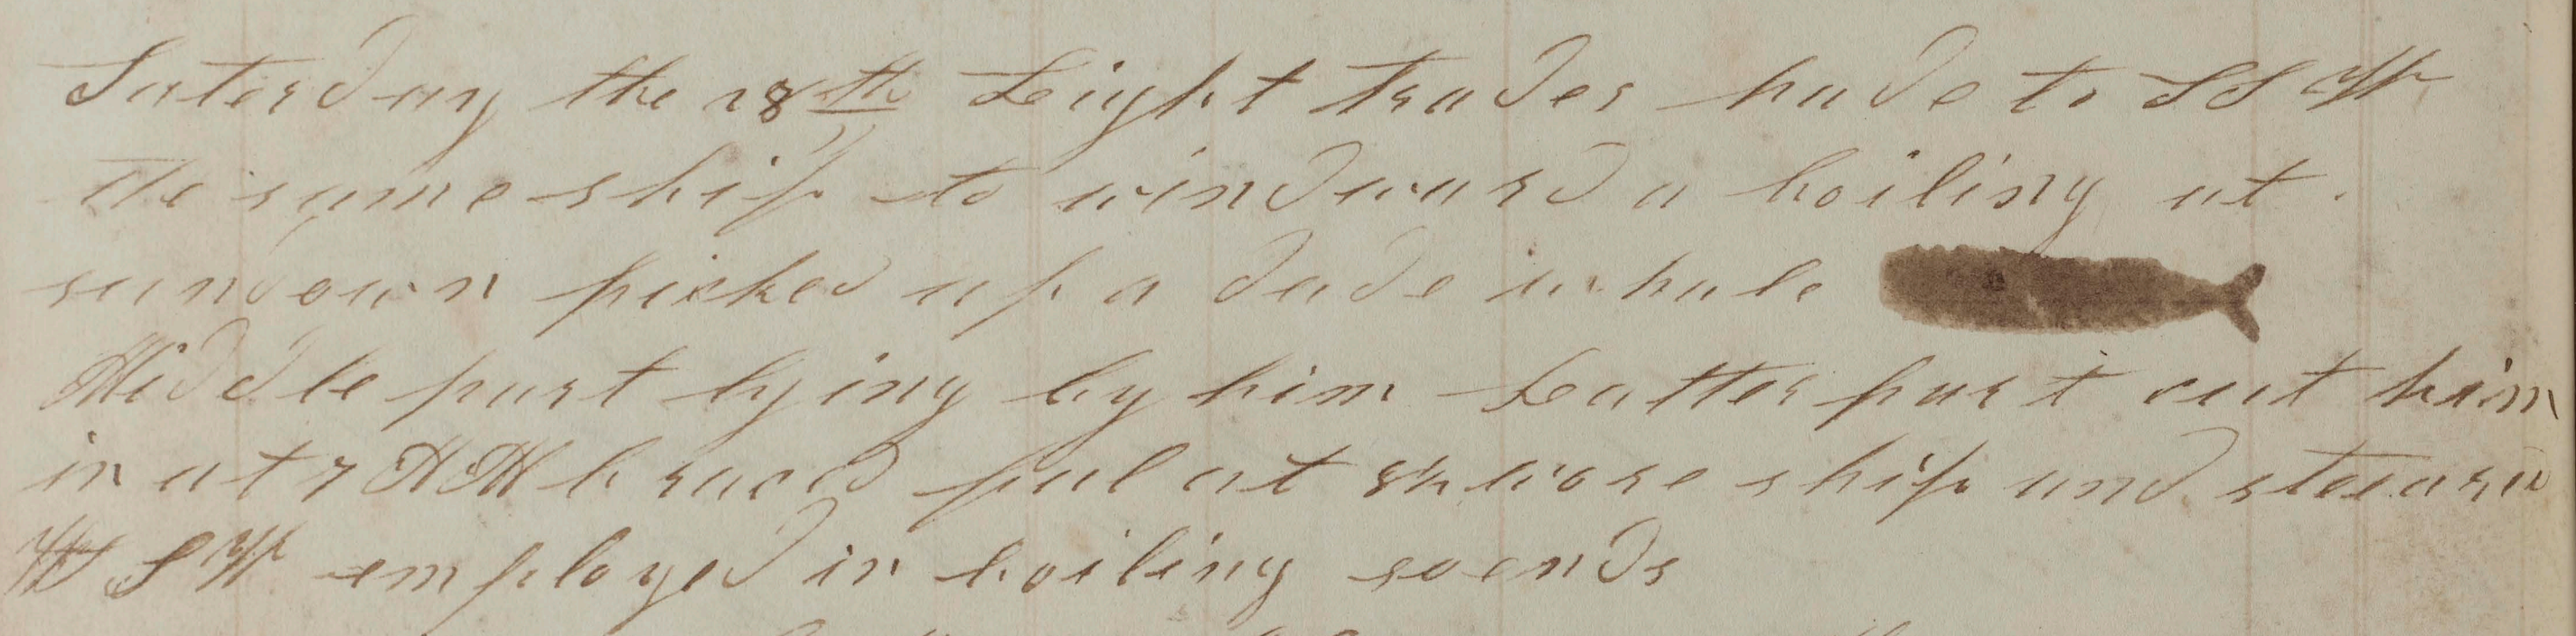 Saterday the 28th Leight trades hade to SSW
the same ship to windward a boiling at
sundown picked up a dade whale
Middle part lying by him Latter part cut him
in at 7 AM braced ful at wore ship and steard
WSW employed in boiling soends